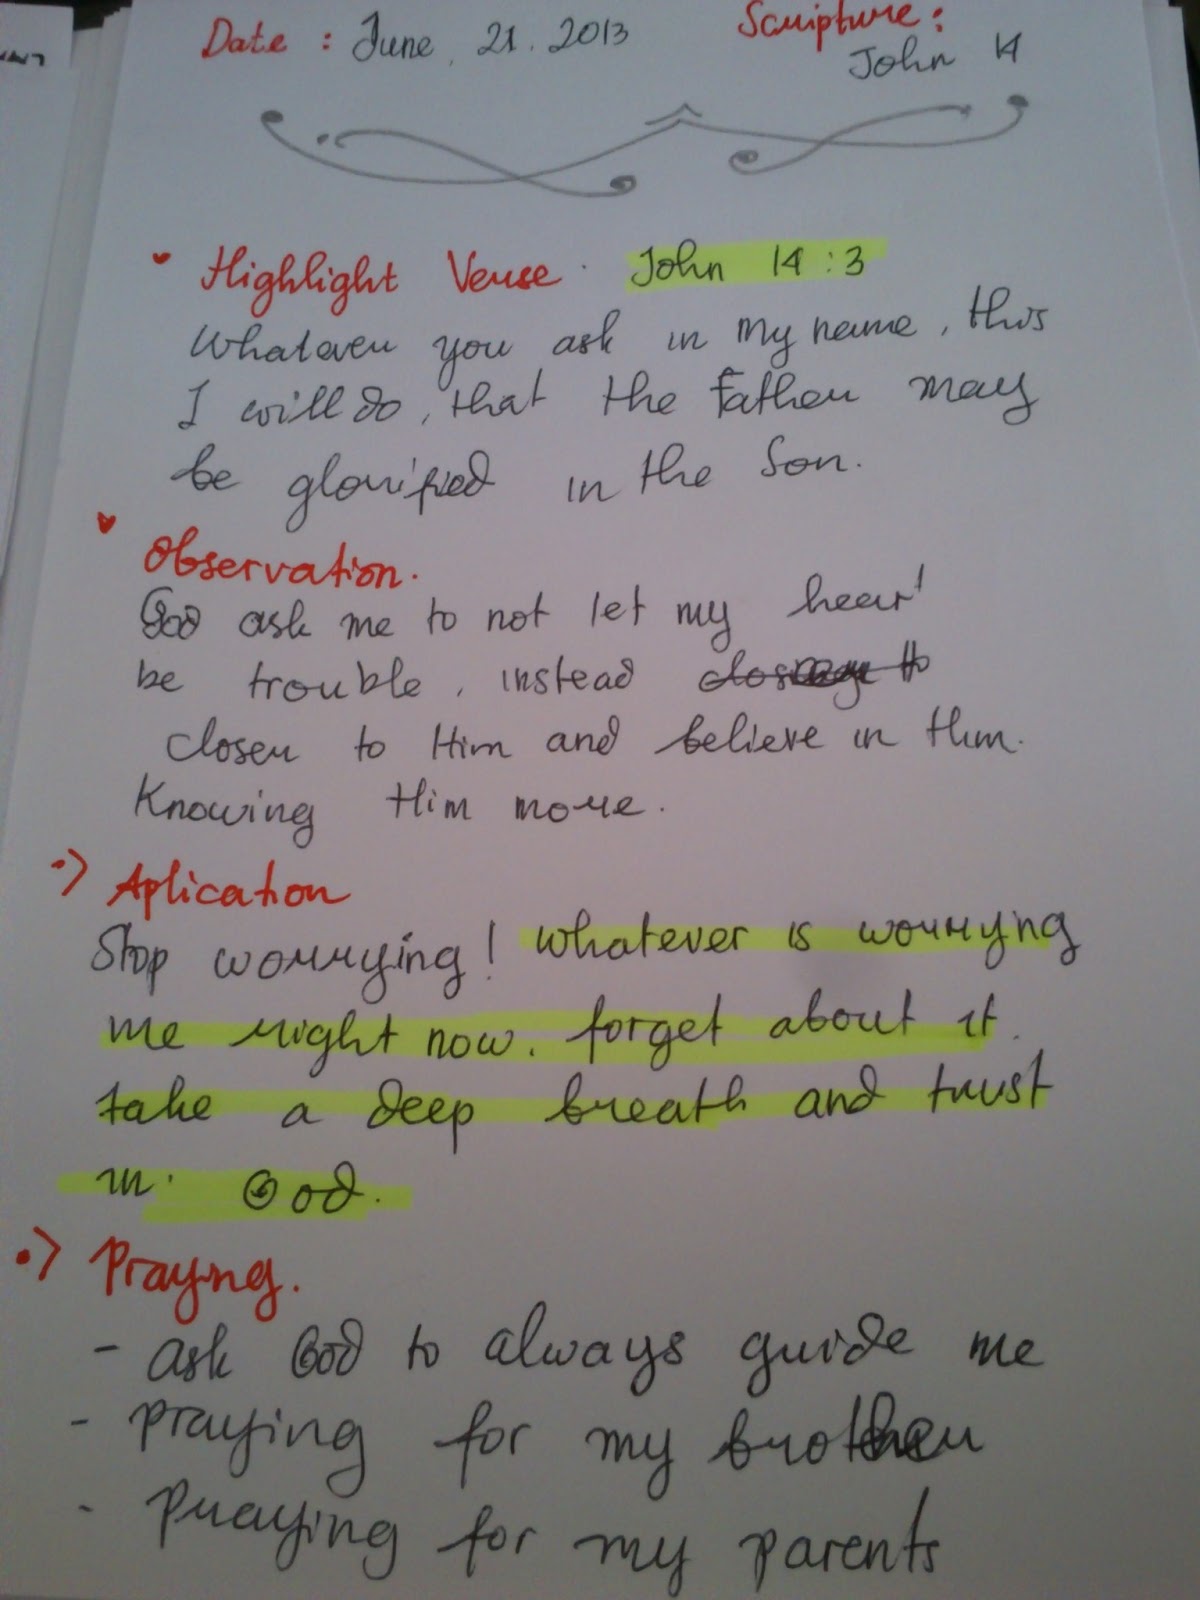 Date : June, 21. 2013
Scripture :
John 14
Highlight Verse. John 14 : 3
Whatever you ask in my name, this
I will do, that the Father may
be glorified in the Son.
Observation.
God ask me to not let my heart
be trouble, instead
closer to Him and believe in Him.
Knowing Him more.
Aplication
Stop worrying! Whatever is worrying
me right now. forget about it.
take a deep breath and trust
in. God.
Prayng.
- ask God to always guide me
- praying for my brother
- praying for my parents